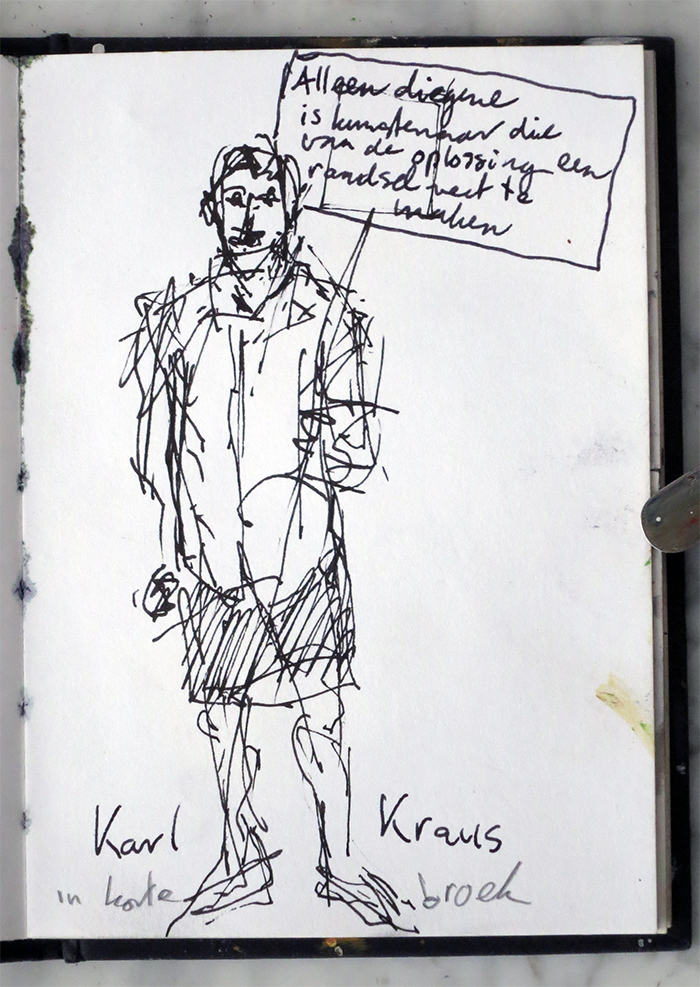 Alleen diegene
is kunstenaar die
van de oplossing een
raadsel weet te
maken
Karl Kraus
in korte broek